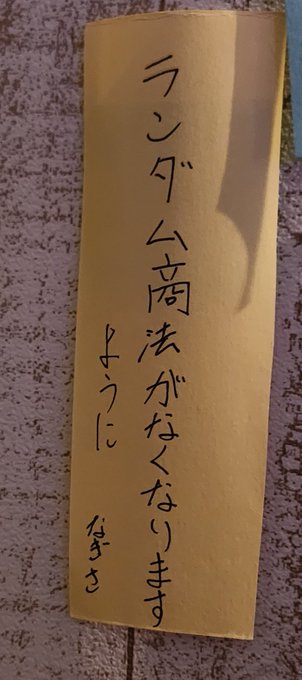 ランダム商法がなくなります
ように
なぎさ